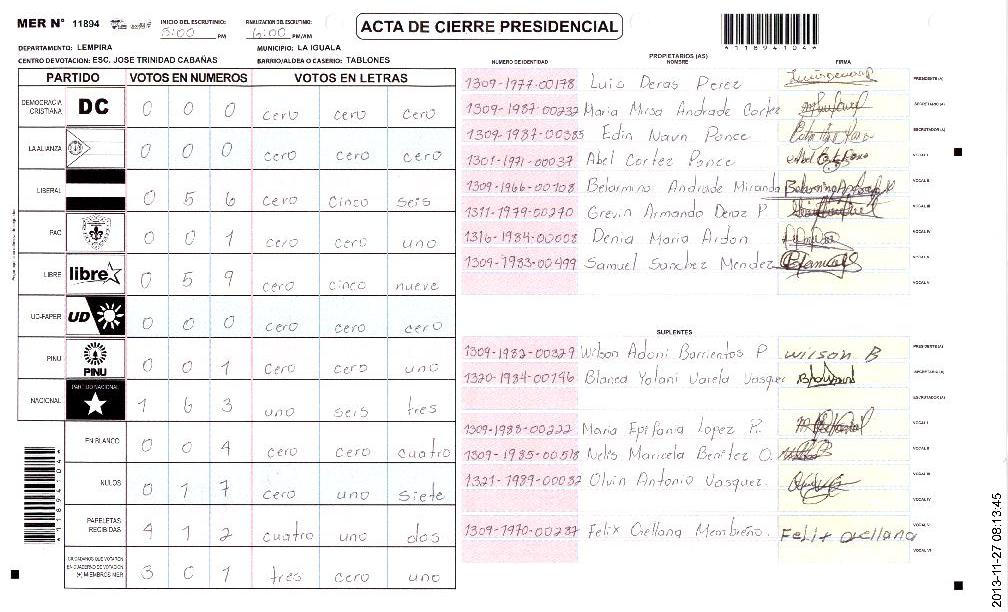 MER N° 11894 INICIO DEL ESCRUTINIO: 5:00 PM FINALIZACION DEL ESCRUTINIO: 6:00 PM/AM
ACTA DE CIERRE PRESIDENCIAL
*11894104*
DEPARTAMENTO: LEMPIRA MUNICIPIO: LA IGUALA
CENTRO DE VOTACION: ESC. JOSE TRINIDAD CABAÑAS BARRIO/ALDEA O CASERIO: TABLONES
PARTIDO VOTOS EN NUMEROS VOTOS EN LETRAS
DEMOCRACIA CRISTIANA DC 0 0 0 cero cero cero
LA ALIANZA 0 0 0 cero cero cero
LIBERAL 0 5 6 cero cinco seis
PAC 0 0 1 cero cero uno
LIBRE libre 0 5 9 cero cinco nueve
UD-FAPER UD 0 0 0 cero cero cero
PINU PINU 0 0 1 cero cero uno
NACIONAL PARTIDO NACIONAL 1 6 3 uno seis tres
EN BLANCO 0 0 4 cero cero cuatro
NULOS 0 1 7 cero uno siete
PAPELETAS RECIBIDAS 4 1 2 cuatro uno dos
CIUDADANOS QUE VOTARON EN CUADERNO DE VOTACION (+) MIEMBROS MER 3 0 1 tres cero uno
*11894104*
PROPIETARIOS (AS)
NUMERO DE IDENTIDAD NOMBRE FIRMA
1309-1977-00178 Luis Deras Perez PRESIDENTE (A)
1309-1987-00232 Maria Mirsa Andrade Cortez SECRETARIO (A)
1309-1987-00385 Edin Navn Ponce ESCRUTADOR (A)
1301-1971-00037 Abel Cortez Ponce VOCAL I
1309-1966-00108 Belarmino Andrade Miranda VOCAL II
1311-1979-00270 Grevin Armando Deraz P VOCAL III
1316-1984-00008 Denia Maria Ardon VOCAL IV
1309-1983-00499 Samuel Sanchez Mendez VOCAL V
VOCAL VI
SUPLENTES
1309-1982-00329 Wilson Adoni Barrientos P wilson B PRESIDENTE (A)
1320-1984-00196 Blanca Yolani Varela Vasquez SECRETARIO (A)
ESCRUTADOR (A)
1309-1988-00222 Maria Epifania Lopez P. VOCAL I
1309-1985-00518 Nelis Maricela Benitez O. VOCAL II
1321-1989-00032 Olvin Antonio Vasquez. VOCAL III
VOCAL IV
1309-1970-00237 Felix Orellana Membreño. Felix orellana VOCAL V
VOCAL VI
2013-11-27 08:13:45